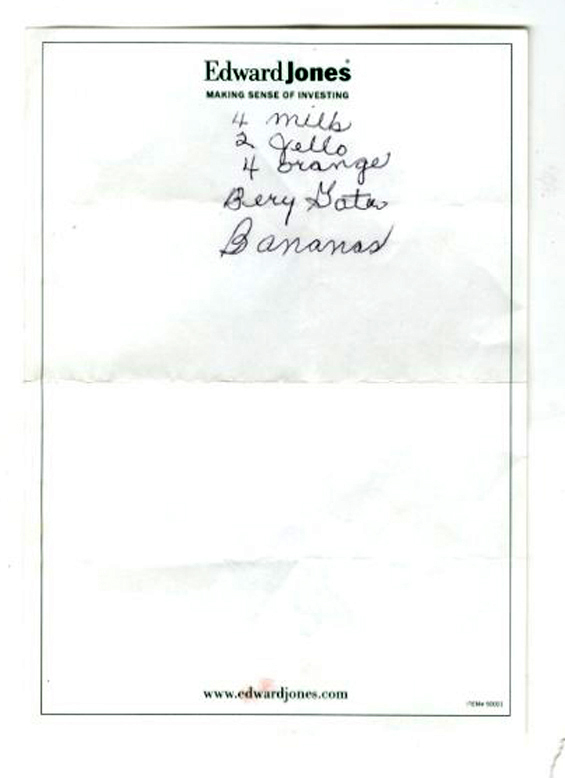 Edward Jones
MAKING SENSE OF INVESTING
4 milk
2 Jello
4 orange
Bery Gator
Bananas
www.edwardjones.com
ITEM# 90001